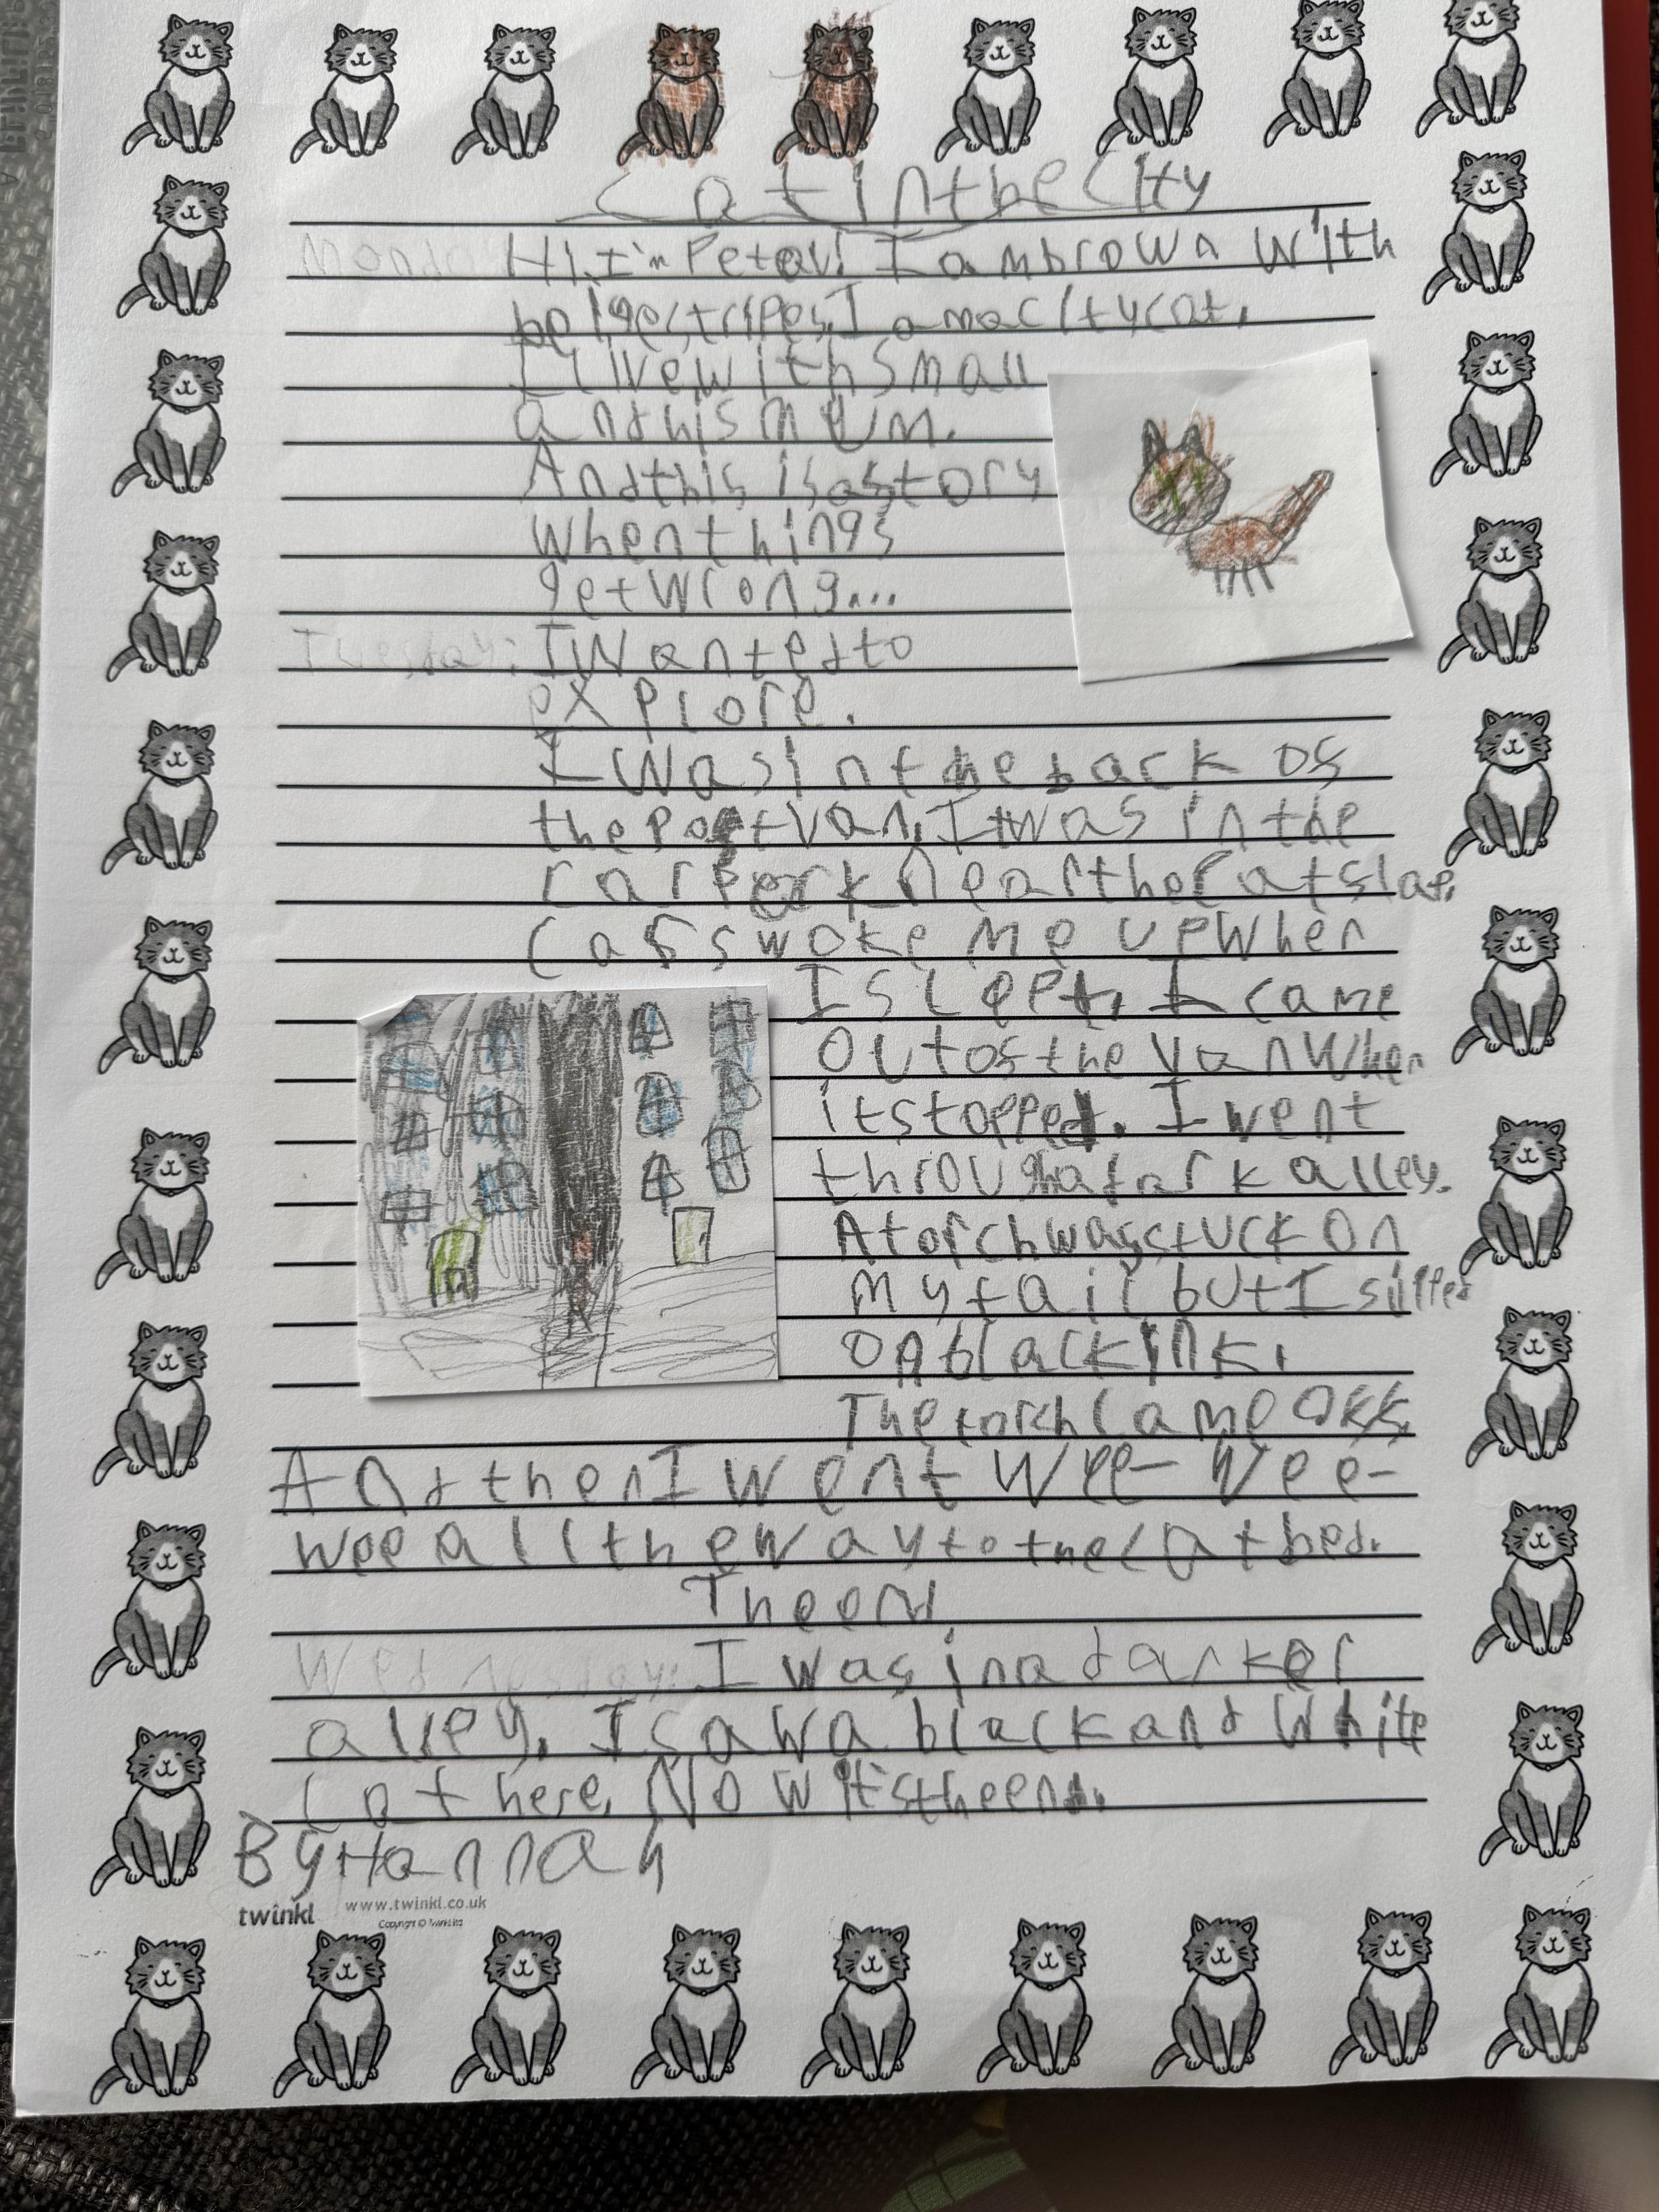 Cat in the City
Monda Hi. I'm Peter! I am brown with
beige stripes. I am a city cat.
I live with Small
and his mum.
And this is a story
when things
get wrong...
Tuesday: I wanted to
explore.
I was in the back of
the Post van. It was in the
car Park near the cat flap.
Cars woke me up when
I slept. I came
out of the van when
it stopped. I went
through a dark alley.
A torch was stuck on
my tail but I slipped
on black ink.
The torch came off.
And then I went wee-wee-
wee all the way to the cat bed.
The end
Wednesday: I was in a darker
alley. I saw a black and white
cat here. Now it's the end.
By Hannah
twinkl www.twinkl.co.uk
Copyright © Twinkl Ltd